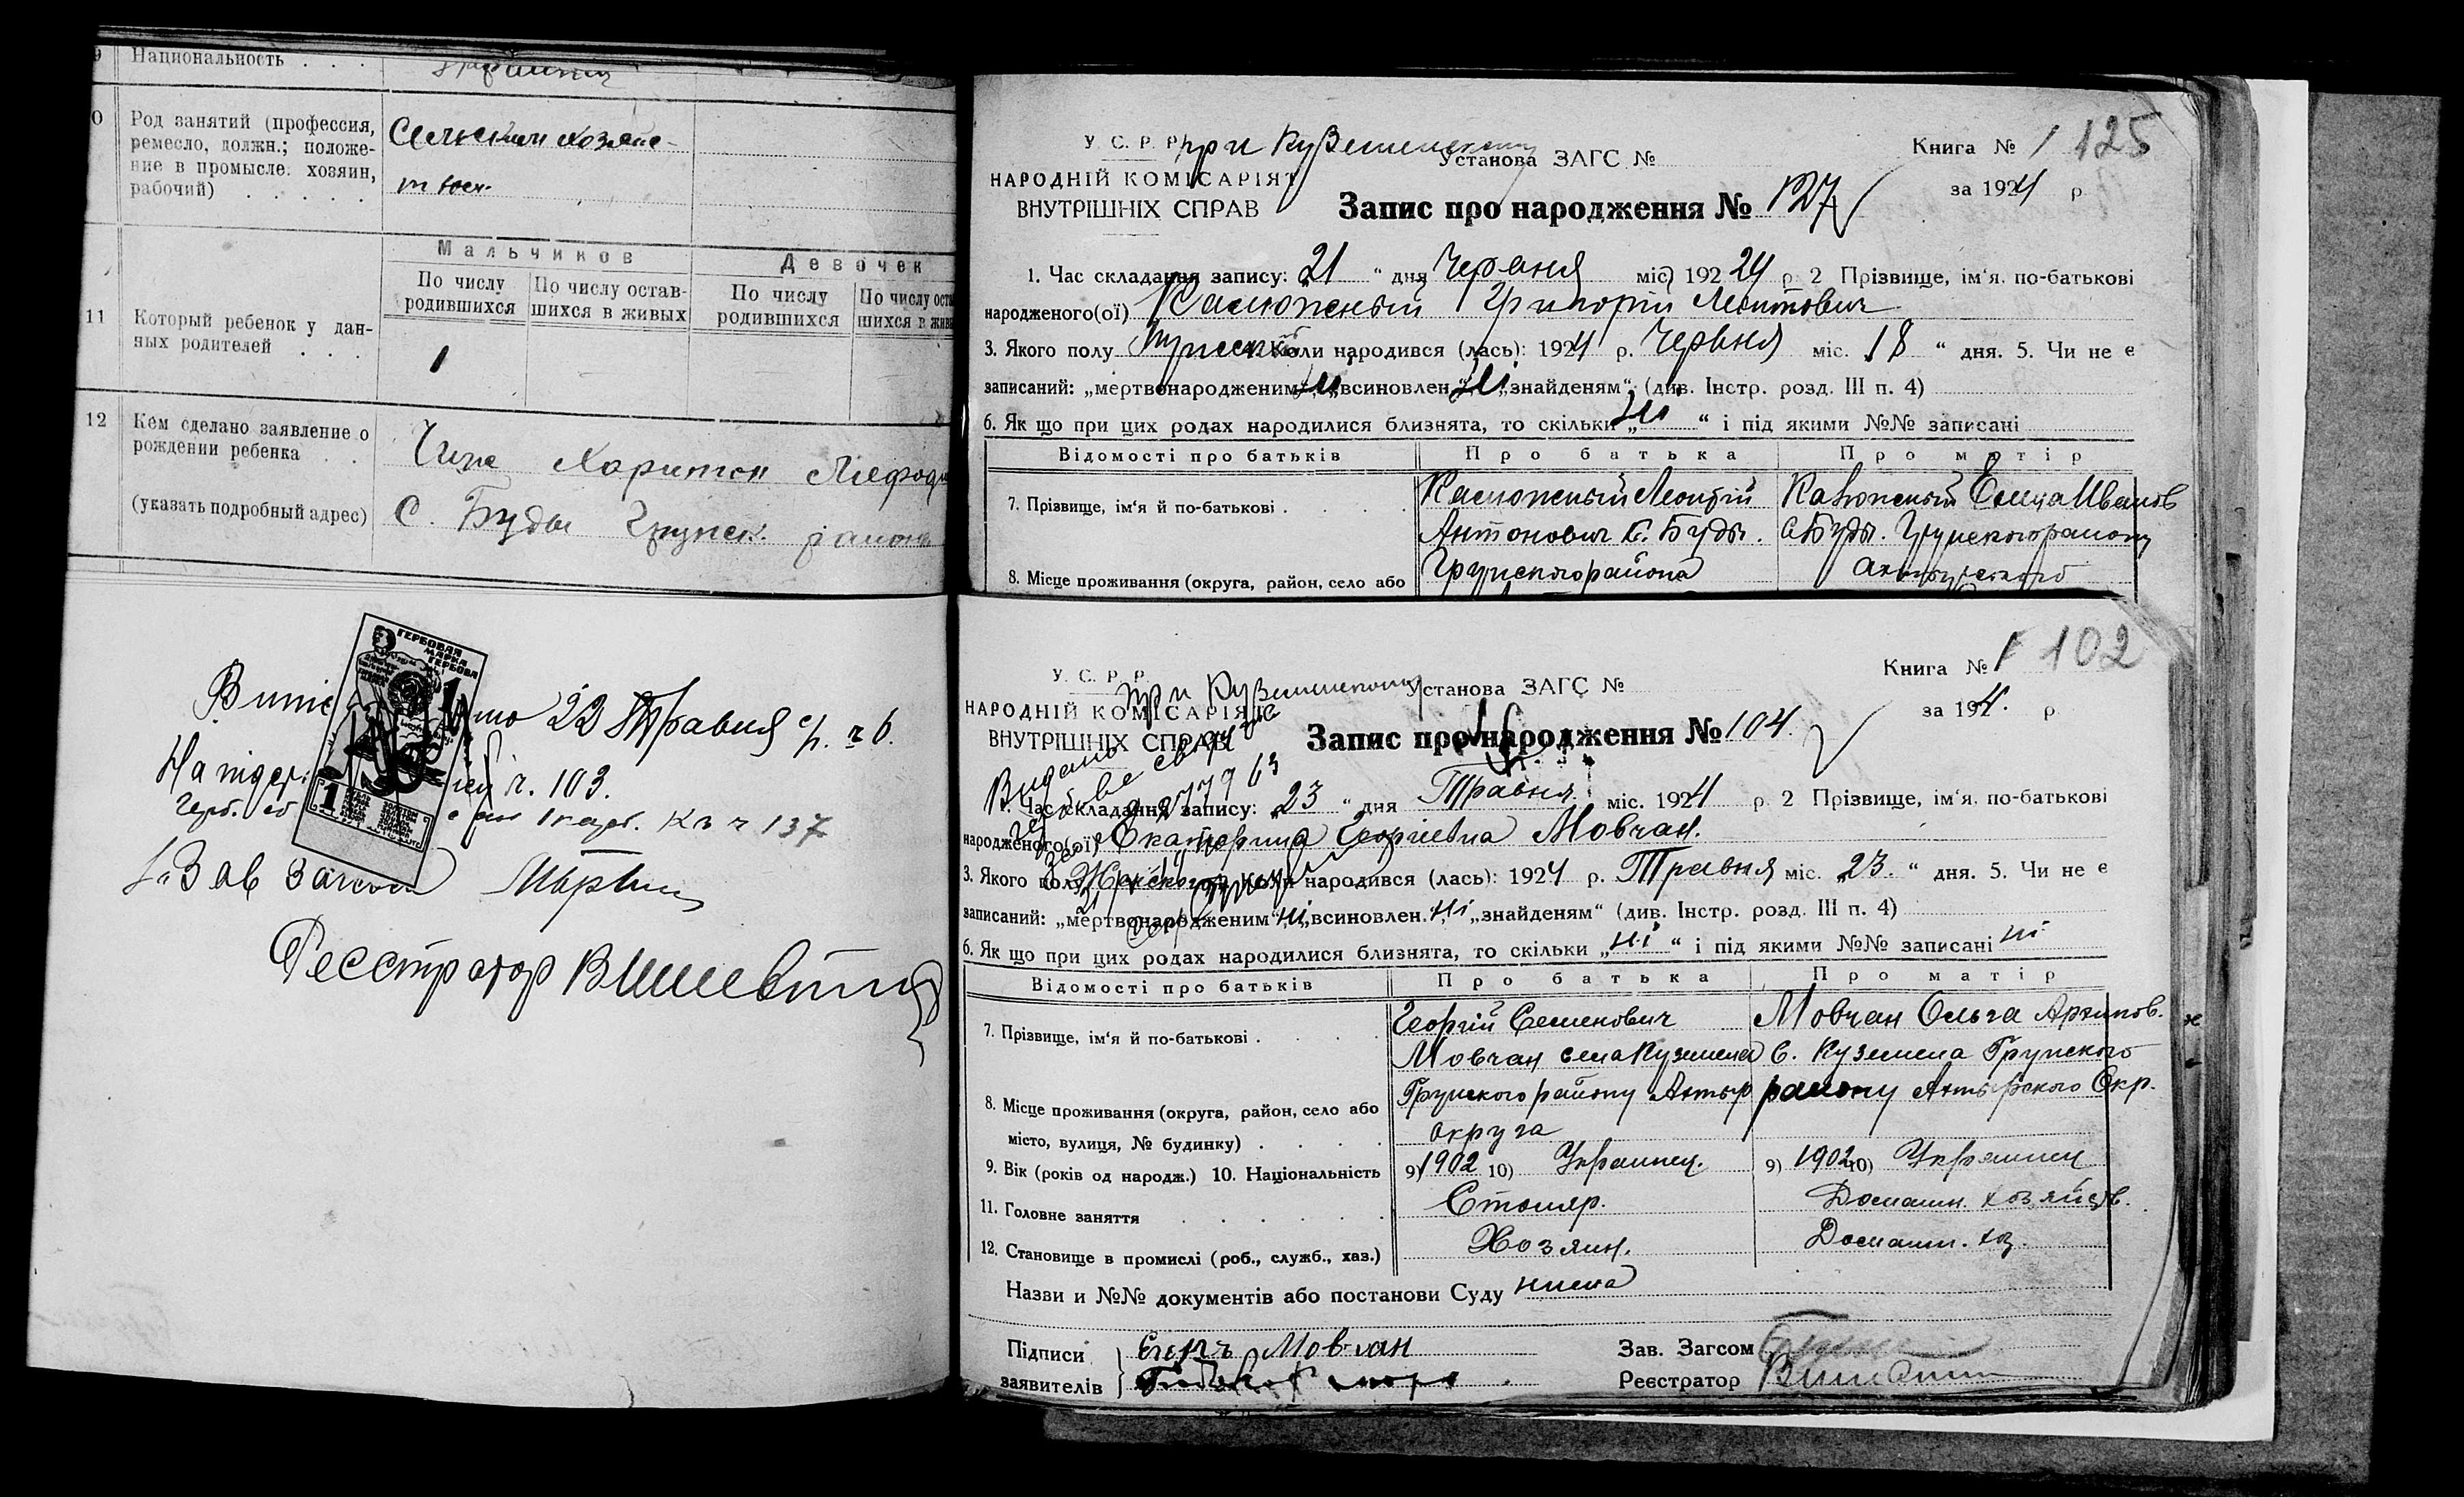 9 Национальность
10 Род занятий (профессия,
ремесло, должн.; положе-
ние в промысле: хозяин,
рабочий)
Сельским хозяйс-
твом.
Мальчиков
Девочек
По числу родившихся
По числу остав-шихся в живых
По числу родившихся
По числу
11 Который ребенок у дан-
ных родителей
1
12 Кем сделано заявление о
рождении ребенка
(указать подробный адрес)
Харитон
С. Буды Грунск. района
22 Травня
ч. 103.
ч 137
Реестратор
ГЕРБОВАЯ
МАРКА
1
У. С. Р. Р.
при
Установа ЗАГС №
Книга № 1 125
НАРОДНІЙ КОМІСАРІЯТ
ВНУТРІШНІХ СПРАВ
за 1924 р
Запис про народження № 127
1. Час складання запису: 21 " дня Червня міс 192 24 р 2 Прізвище, ім'я, по-батькові
народженого(ої) Калюжный Григорій Леонтович
3. Якого полу Мужск. Коли народився (лась): 1924 р. Червня міс. 18 " дня. 5. Чи не є
записаний: „мертвонародженим" ні „всиновлен." ні „знайденям" (див. Інстр. розд. III п. 4)
6. Як що при цих родах народилися близнята, то скільки „ні" і під якими №№ записані
Відомості про батьків
Про батька
Про матір
7. Прізвище, ім'я й по-батькові
Калюжный Леонтій
Антонович с. Буды.
Грунского района
Иванов
с Буды. Грунского району
8. Місце проживання (округа, район, село або
У. С. Р. Р.
при
Установа ЗАГС №
Книга № 1 102
НАРОДНІЙ КОМІСАРІЯТ
ВНУТРІШНІХ СПРАВ
за 1924. р
Запис про народження № 104.
Видано
1. Час складання запису: 23 " дня Травня міс. 1924 р 2 Прізвище, ім'я, по-батькові
народженого(ої) Екатерина Георгіевна Мовчан.
3. Якого полу Женского Коли народився (лась): 1924 р. Травня міс. 23. " дня. 5. Чи не є
записаний: „мертвонародженим" ні „всиновлен." ні „знайденям" (див. Інстр. розд. III п. 4)
6. Як що при цих родах народилися близнята, то скільки „ні" і під якими №№ записані ні
Відомості про батьків
Про батька
Про матір
7. Прізвище, ім'я й по-батькові
Георгій Семенович
Мовчан села Куземена
Грунского району Ахтыр
округа
Мовчан Ольга Архипов.
С. Куземена Грунского
району Ахтырского Окр.
8. Місце проживання (округа, район, село або
місто, вулиця, № будинку)
9. Вік (років од народж.) 10. Національність
9) 1902 10) Украинец.
9) 1902 10) Украинец
11. Головне заняття
Столяр.
Домашн. хозяйств.
12. Становище в промислі (роб., служб., хаз.)
Хозяин.
Домашн. хоз.
Назви и №№ документів або постанови Суду нима
Підписи
заявителів
Мовчан
Зав. Загсом
Реєстратор